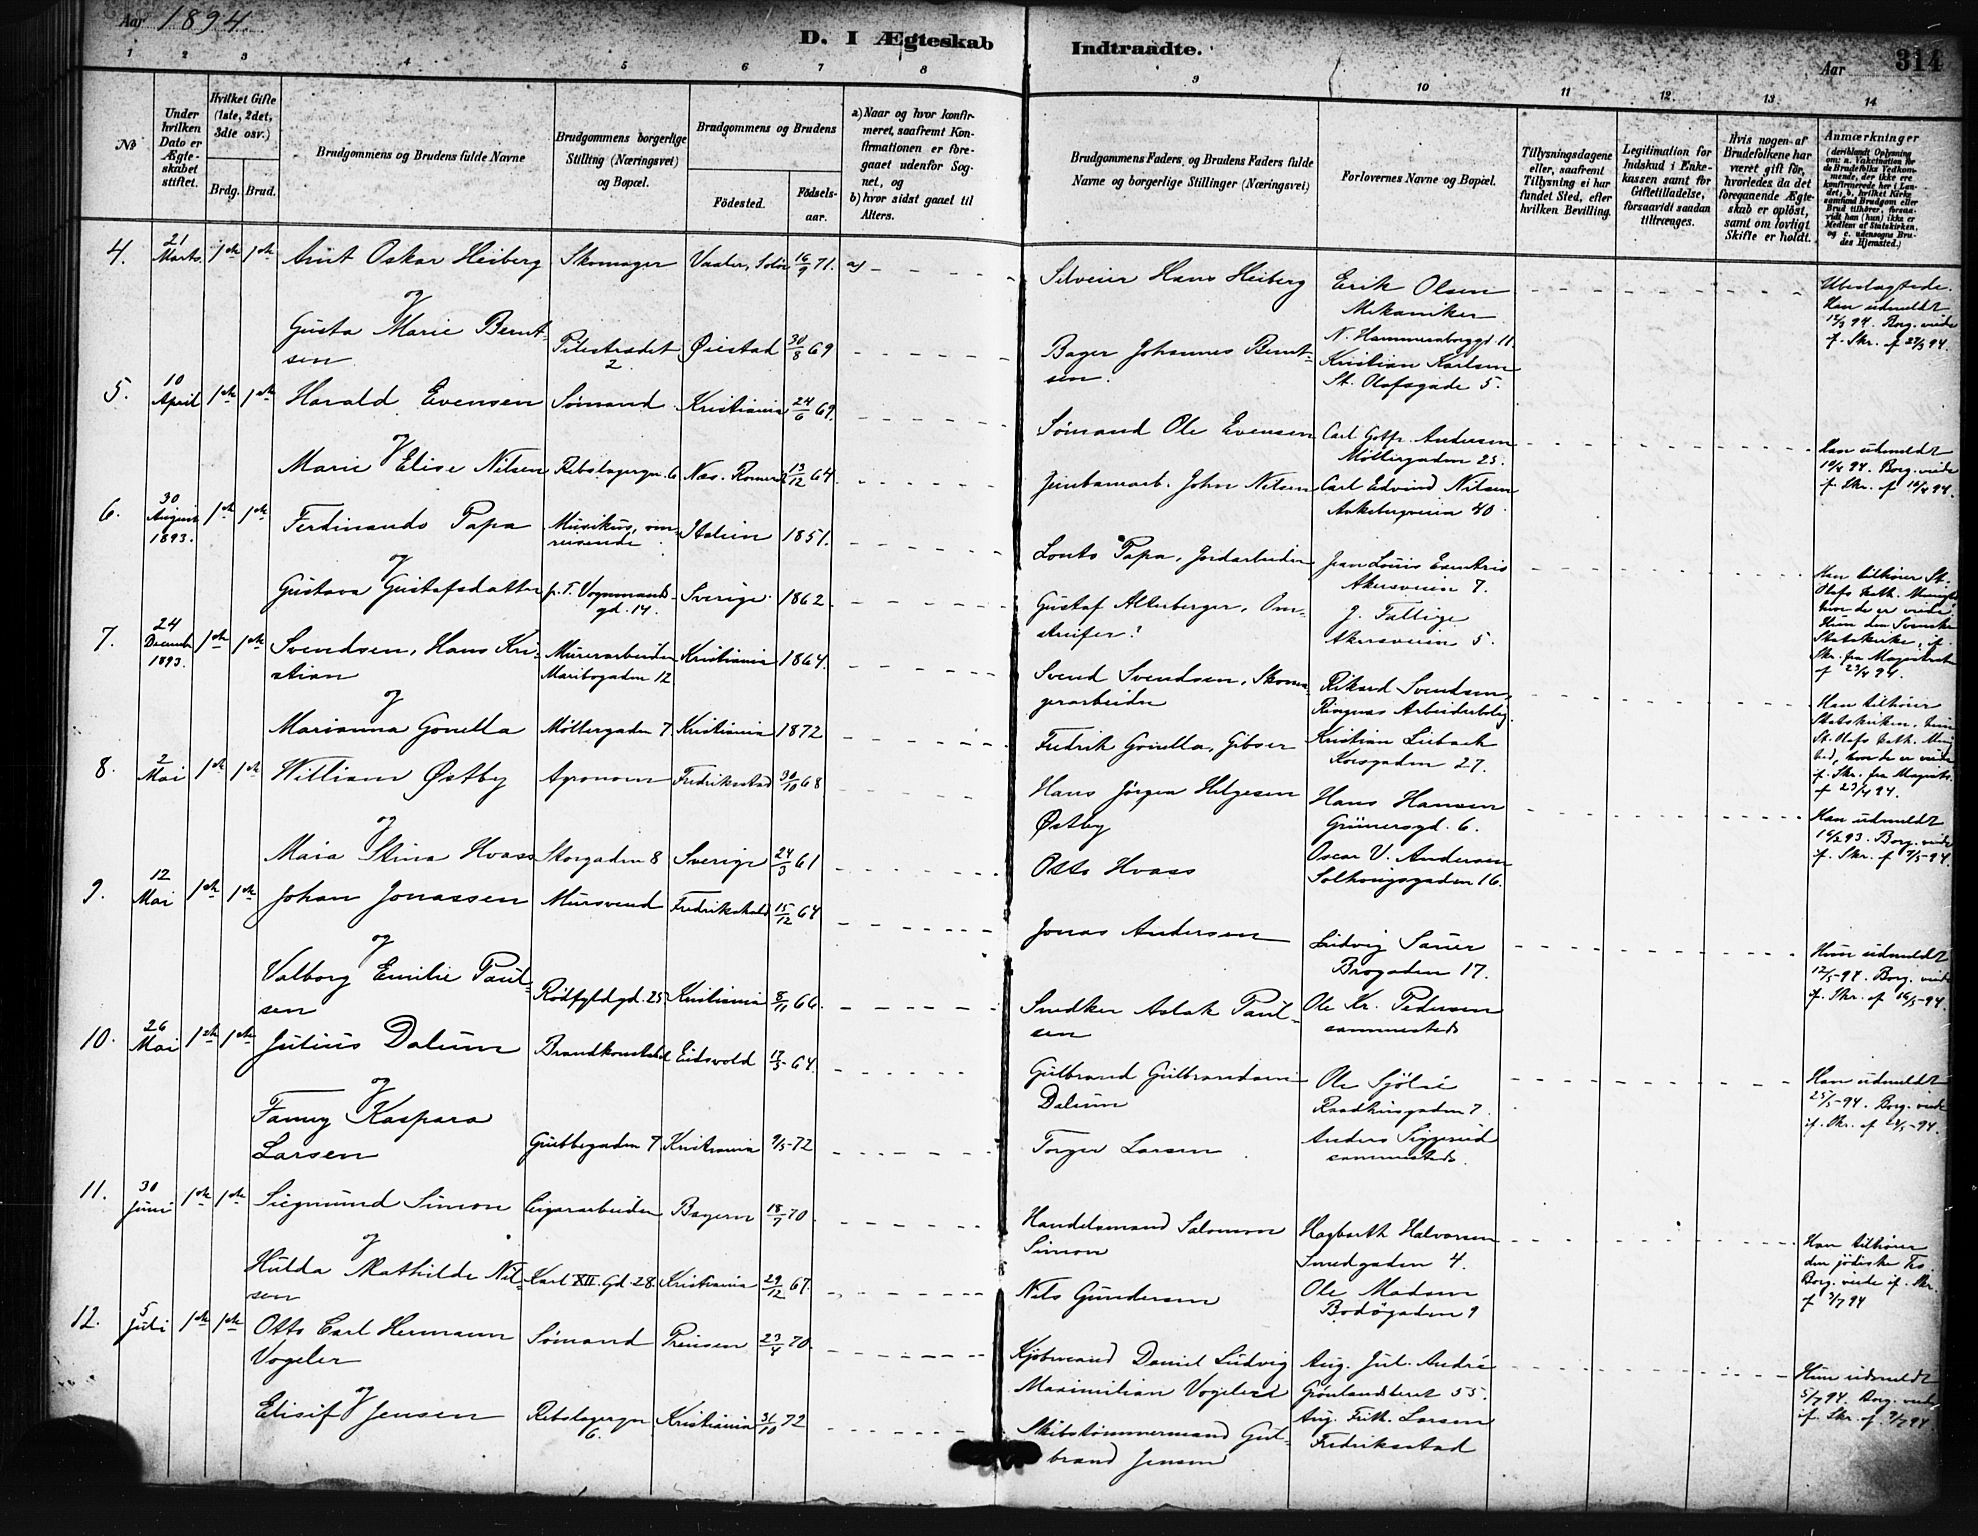 Aar 1894
D. I Ægteskab Indtraadte.
Aar 314
1 2 3 4 5 6 7 8 9 10 11 12. 13. 14
No
Under hvilken Dato er Ægteskabet stiftet.
Hvilket Gifte (1ste, 2det, 3dte osv.)
Brdg. Brud.
Brudgommens og Brudens fulde Navne
Brudgommens borgerlige Stilling (Næringsvei) og Bopæl.
Brudgommens og Brudens
Fødested.
Fødselsaar.
a) Naar og hvor konfirmeret, saafremt Konfirmationen er foregaaet udenfor Sognet, og
b) hvor sidst gaaet til Alters.
Brudgommens Faders, og Brudens Faders fulde Navne og borgerlige Stillinger (Næringsvei)
Forlovernes Navne og Bopæl.
Tillysningsdagene eller, saafremt Tillysning ei har fundet Sted, efter hvilken Bevilling.
Legitimation for Indskud i Enkekassen samt for Giftetilladelse, forsaavidt saadan tiltrænges.
Hvis nogen af Brudefolkene har været gift før, hvorledes da det foregaaende Ægteskab er opløst, samt om lovligt Skifte er holdt.
Anmærkninger
(deriblandt Oplysning om: a. Vakcination for de Brudefolks Vedkommende, der ikke ere konfirmerede her i Landet; b. hvilket Kirkesamfund Brudgom eller Brud tilhører, forsaavidt han (hun) ikke er Medlem af Statskirken, og c. udensogns Brudes Hjemsted.)
4. 21 Marts. 1ste 1ste Arnt Oskar Heiberg Skomager Vaaler, Solør 16/9 71. a)
Skriver Hans Heiberg Erik Olsen
Mekaniker
Ubeslægtede.
Han udmeldt
12/3 94. Borg. viede
if. Skr. af 27/3 94.
og
Gusta Marie Berntsen Pilestrædet 2 Øiestad 30/8 69
Bager Johannes Berntsen.
N. Hammersborggd. 11
Kristian Karlsen
St. Olafsgade 5.
5. 10 April 1ste 1ste Harald Evensen Sømand Kristiania 24/6 69.
Sømand Ole Evensen Carl Gotfr. Andersen
Møllergaden 25.
Han udmeldt
10/4 94. Borg. viede
if. Skr. af 10/4 94.
og
Marie Elise Nilsen Rebslagergn. 6 Næs. Romerik 13/12 64
Jernbanearb. John Nilsen Carl Edvind Nilsen
Ankebergveien 40
6. 30 August 1893. 1ste 1ste Ferdinando Papa Musikus, omreisende Italien 1851.
Louis Papa, Jordarbeider Jean Louis
Akersveien 7.
Han tilhører St.
Olafs kath. Menighed
hvor de er viede
Hun den Svenske
Statskirke, if.
Skr. fra Magistraten
af 23/4 94.
og
Gustava Gustafsdatter p. T. Vognmandsgd. 14. Sverige 1862
Gustaf Alterberger, Omstreifer? J. Fallize
Akersveien 5.
7. 24 Decembr 1893. 1ste 1ste Svendsen, Hans Kristian Murerarbeider
Maribogaden 12 Kristiania 1864.
Svend Svendsen, Skomagerarbeider Rikard Svendsen,
Ringnæs Arbeiderbolig.
Han tilhører
Statskirken, hun
St. Olafs kath. Menighed, hvor de er viede
if. Skr. fra Magistr.
af 23/4 94.
og
Marianna Gonella Møllergaden 7 Kristiania 1872
Fredrik Gonella, Gibser Kristian Liebach
Korsgaden 27.
8. 2 Mai 1ste 1ste William Østby Agronom Fredriksstad 30/10 68
Hans Jörgen Helgesen
Østby Hans Hansen
Grünersgd. 6.
Han udmeldt
16/2 93. Borg. viede
if. Skr. af 7/5-94.
og
Maia Stina Hvass Storgaden 8 Sverige 24/3 61
Otto Hvass Oscar V. Andersen
Solhougsgaden 16.
9. 12 Mai 1ste 1ste Johan Jonassen Mursvend Fredrikshald 15/12 64
Jonas Andersen Ludvig Sauer
Brogaden 17.
Hun udmeldt
12/5-94. Borg. viede
if. Skr. af 16/5-94.
og
Valborg Emilie Paulsen Rødfyldgd. 25 Kristiania 8/11 66
Snedker Aslak Paulsen Ole Kr. Pedersen
sammesteds
10. 26 Mai 1ste 1ste Julius Dalum Brandkonstabel Eidsvold 17/3 64.
Gulbrand Gulbrandsen
Dalum Ole Sjölie
Raadhusgaden 7.
Han udmeldt
25/5-94. Borg. viede
if. Skr. af 28/5-94.
og
Fanny Kaspara
Larsen Grubbegaden 7 Kristiania 9/5-72
Torger Larsen Anders Siggerud
sammesteds.
11. 30 Juni 1ste 1ste Siegmund Simon Cigararbeider Bayern 18/7 70
Handelsmand Salomon
Simon Hagbarth Halvorsen
Smedgaden 4.
Han tilhører
den jödiske Tro.
Borg. viede if. Skr.
af 3/7 94
og
Hulda Mathilde Nilsen Karl XII. Gd. 28 Kristiania 29/12 67.
Nils Gundersen Ole Madsen
Bodögaden 9
12. 5 Juli 1ste 1ste Otto Carl Hermann
Vogeler Sømand Preusen 23/4 70.
Kjøbmand Daniel Ludvig
Maximilian Vogeler Aug. Jul. André
Grönlandsleret 55.
Hun udmeldt
5/7 94. Borg. viede,
if. Skr. af 9/7 94
og
Elisif Jensen Rebslagergn 6. Kristiania 31/10 72
Skibstömmermand Gulbrand Jensen Aug. Frith. Larsen
Fredriksstad